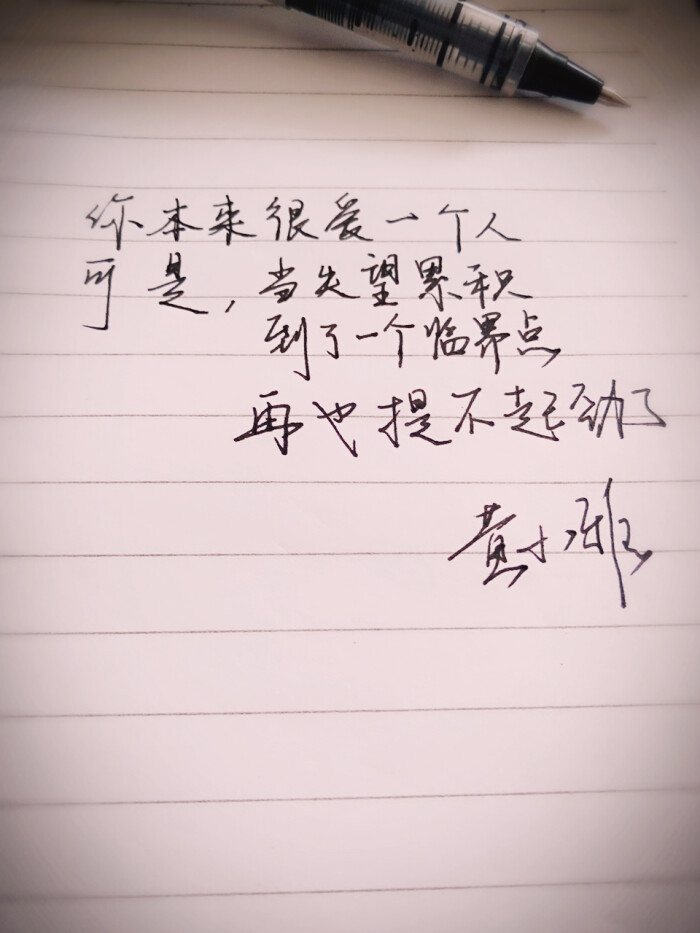 你本来很爱一个人
可是,当失望累积
到了一个临界点
再也提不起劲了
黄小雅